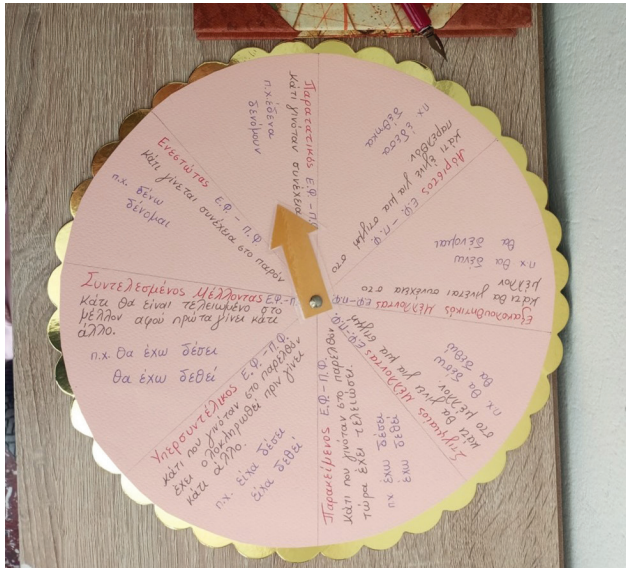 Ενεστώτας Ε.Φ. - Π.Φ
κάτι γίνεται συνέχεια στο παρόν
π.χ. δένω
δένομαι
Παρατατικός Ε.Φ. - Π.
κάτι γινόταν συνέχεια
π.χ έδενα
δενόμουν
Αόριστος Ε.Φ. - Π.Φ.
κάτι έγινε για μια στιγμή στο
παρελθόν
π.χ έδεσα
δέθηκα
Εξακολουθητικός Μέλλοντας Ε.Φ-Π.Φ.
κάτι θα γίνεται συνέχεια στο
μέλλον
π.χ θα δένω
θα δένομαι
Στιγμιαίος Μέλλοντας Ε.Φ-Π.Φ.
κάτι θα γίνει για μια στιγμή
στο μέλλον
π.χ θα δέσω
θα δεθώ
Παρακείμενος Ε.Φ-Π.Φ.
κάτι που γινόταν στο παρελθόν
τώρα έχει τελειώσει.
π.χ έχω δέσει
έχω δεθεί
Υπερσυντέλικος Ε.Φ.-Π.Φ.
κάτι που γινόταν στο παρελθόν
έχει ολοκληρωθεί πριν γίνει
κάτι άλλο.
π.χ. είχα δέσει
είχα δεθεί
Συντελεσμένος Μέλλοντας Ε.Φ-Π
κάτι θα είναι τελειωμένο στο
μέλλον αφού πρώτα γίνει κάτι
άλλο.
π.χ. θα έχω δέσει
θα έχω δεθεί